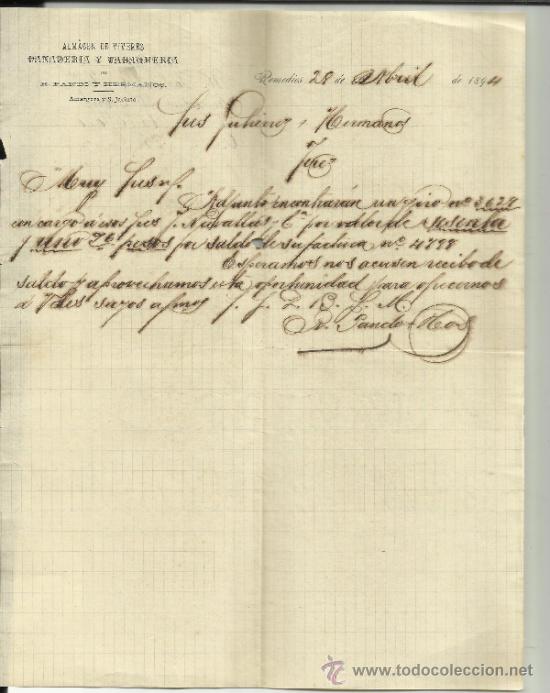 ALMÁCEN DE VIVERES
PANADERIA Y TABAQUERIA
DE
R. PANDO Y HERMANOS.
Amargura y S. Jacinto
Remedios 28 de Abril de 1894
Sres Gutierrez y Hermanos
Jerez
Muy Sres ntrs.
Adjunto encontrarán un giro nº 3628
con cargo á esos Sres J. y Cª por valor de sesenta
y uno pesos por saldo de su factura nº 4798
Esperamos nos acusen recibo de
saldo y aprovechamos esta oportunidad para ofrecernos
á Vdes sugos afmos S. S. Q. B. S. M.
R. Pando y Hos
www.todocoleccion.net